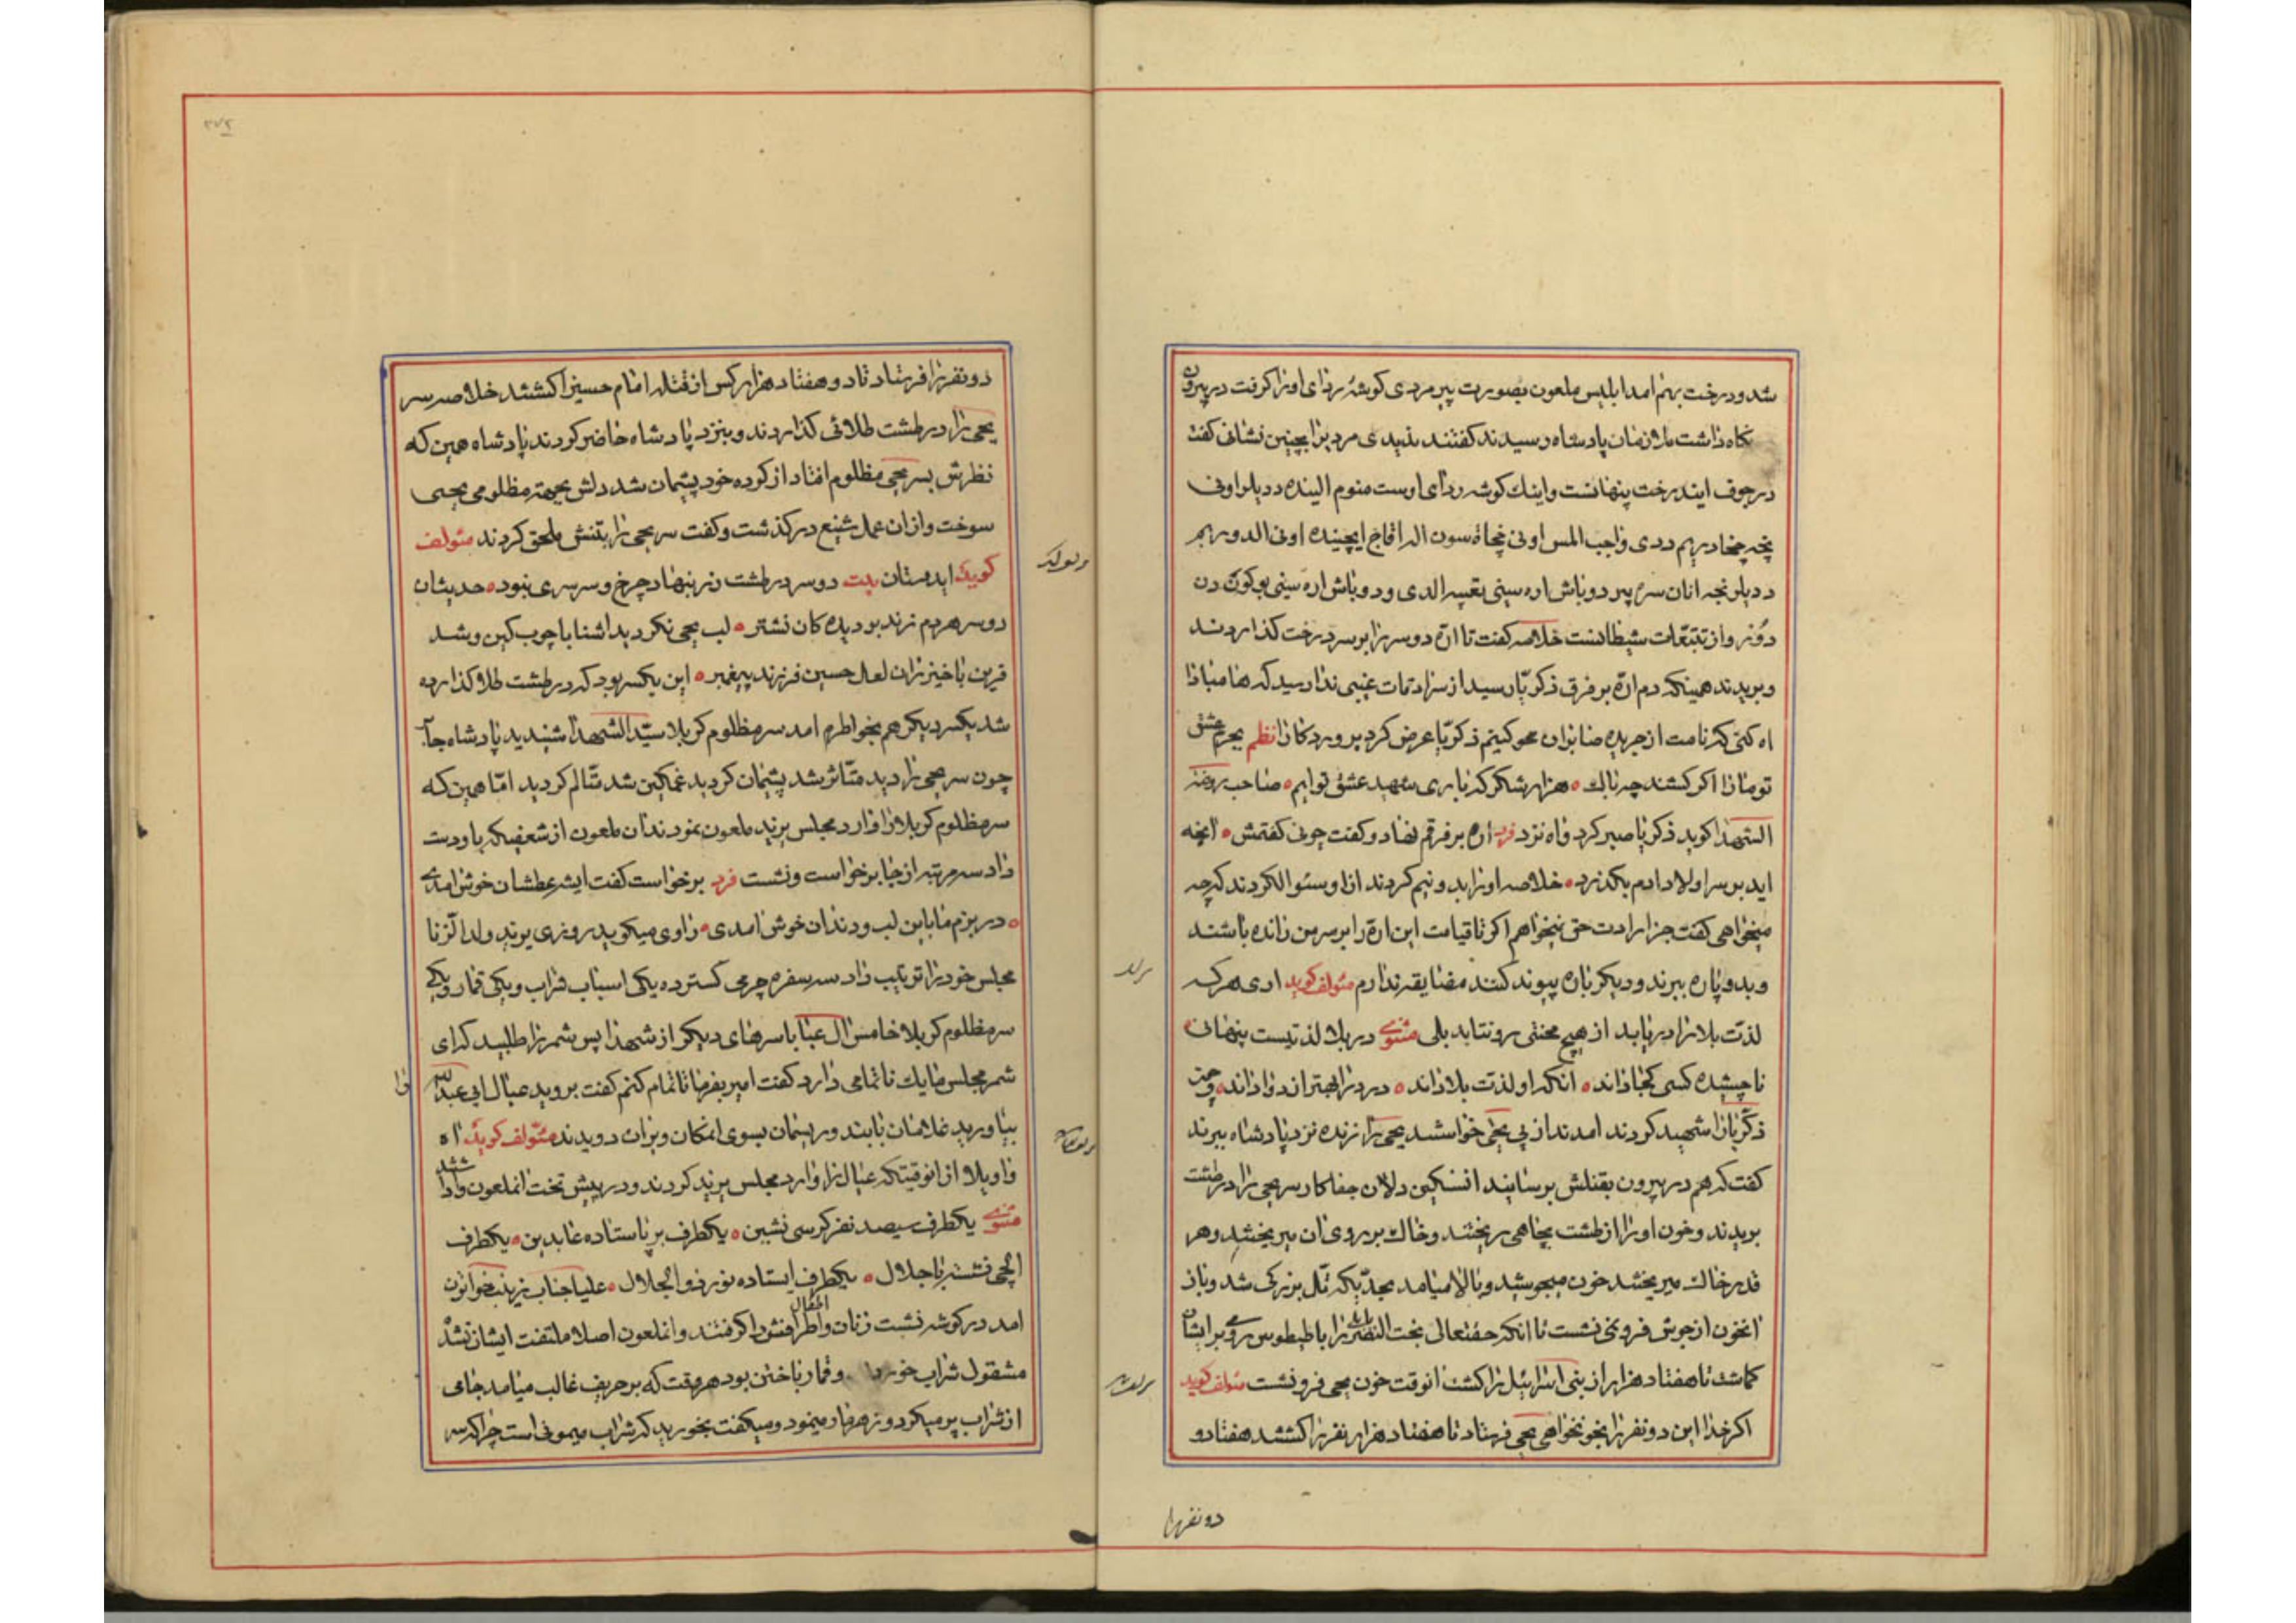 شد و درخت بهم امد ابلیس ملعون بصورت پیر مردی کوشهٔ ردای او را کرفت در بیرون
نکاه داشت ملازمان پادشاه رسیدند کفتند ندیدی مردیرا بچنین نشان کفت
در جوف ایندرخت پنهانست و اینک کوشه ردای اوست منوم الینده دیلر اونی
نجه چخادریم ددی واجب المس اونی چخاتسون الر اقاج ایچینده اونی الدوریم
ددیلر نجه انان سره پیر دوباش اره سینی تعبیه الدی ودوباش اره سینی بوکون دن
دوز و از تتبعات شیطانست خلاصه کفت تا ارّه دوسر را بر سر درخت کذاردند
و بریدند همینکه دم ارّه بر فرق ذکریّا رسید از سرادقات غیبی ندا رسید که هان مبادا
اه کنی که نامت از جریده صابران محو کنیم ذکریّا عرض کرد پروردکارا نظم بجرم عشق
تو ما را اکر کشند چه باک هزار شکر که باری شهید عشق توایم صاحب روضة
الشهدا کوید ذکریا صبر کرد و اه نزد فرد اره بر فرقم نهاد و کفت چونی کفتمش انچه
اید بر سر اولاد ادم بکذرد خلاصه او را بدو نیم کردند از او سئوال کردند که چه
میخواهی کفت جز ارادت حق نمیخواهم اکر تا قیامت این ارّه را بر سر من رانده باشند
و بدو پاره ببرند و دیکر باره پیوند کنند مضایقه ندارم مئولف کوید اری هر که
لذّت بلا را دریابد از هیچ محنتی رو نتابد بلی مثنوی در بلا لذتیست پنهانی
ناچشیده کسی کجا داند انکه او لذت بلا داند درد را بهتر از دوا داند و چون
ذکریا را شهید کردند امدند از پی یحیی خواستند یحیی را زنده نزد پادشاه ببرند
کفت که هم در بیرون بقتلش برسانید ان سنکین دلان جفاکار سر یحیی را در طشت
بریدند و خون او را از طشت بچاهی ریختند و خاک بر روی ان میریختند و هر
قدر خاک میریختند خون میجوشید و بالا میامد بحدّیکه تل بزرکی شد و باز
انخون از جوش فرو نمی نشست تا انکه حقتعالی بخت النصر را با طیطوس رومی بر ایشان
کماشت تا هفتاد هزار از بنی اسرائیل را کشت انوقت خون یحیی فرو نشست مئولف کوید
اکر خدا این دو نفر را بخونخواهی یحیی فرستاد تا هفتاد هزار نفر را کشتند هفتاد و
دو نفر را
دو نفر را فرستاد تا دو هفتاد هزار کس از قتله امام حسین را کشتند خلاصه سر
یحیی را در طشت طلائی کذاردند و بنزد پادشاه حاضر کردند پادشاه همین که
نظرش بسر یحیی مظلوم افتاد از کرده خود پشیمان شد دلش بجهة مظلومی یحیی
سوخت و از ان عمل شنیع در کذشت و کفت سر یحیی را بتنش ملحق کردند مئولف
کوید ایدوستان بیت دو سر در طشت زر بنهاد چرخ و سر سری نبود حدیث ان
دو سر هر دم زند بر دیده کان نشتر لب یحیی نکردید اشنا با چوب کین و شد
قرین با خیزران لعل حسین فرزند پیغمبر این یکسر بود که در طشت طلا کذارده
شد یکسر دیکر هم بخواطرم امد سر مظلوم کربلا سیّد الشهدا شنیدید پادشاه جا
چون سر یحیی را دید متأثر شد پشیمان کردید غمکین شد متألم کردید امّا همین که
سر مظلوم کربلا را وارد مجلس یزید ملعون نمودند ان ملعون از شعفیکه باو دست
داد سه مرتبه از جا برخواست و نشست فرد برخواست کفت ایشه عطشان خوش امدی
در بزم ما باین لب و دندان خوش امدی راوی میکوید روزی یزید ولد الزنا
مجلس خود را ترتیب داد سه سفره چرمی کسترده یکی اسباب شراب و یکی قمار و یکی
سر مظلوم کربلا خامس ال عبا با سرهای دیکر از شهدا پس شمر را طلبید که ای
شمر مجلس ما یک ناتمامی دارد کفت امیر بفرما تا تمام کنم کفت بروید عیال ابی عبدالله را
بیاورید غلامان با بند و ریسمان بسوی انمکان ویران دویدند مئولف کوید اه
واویلا از انوقتیکه عیال را وارد مجلس یزید کردند و در پیش تخت انملعون وا داشتند
مثنوی یکطرف سیصد نفر کرسی نشین یکطرف بر پا ستاده عابدین یکطرف
ایلچی نشسته با جلال یکطرف ایستاده نور ذوالجلال علیا جناب زینب خواتون
امد در کوشه نشست زنان و اطفال اطرافش را کرفتند و انملعون اصلا ملتفت ایشان نشد
مشغول شراب خوردن و قمار باختن بود هر وقت که بر حریف غالب میامد جامی
از شراب پر میکرد و زهرمار مینمود و میکفت بخورید که شراب میمونی است چرا که سر